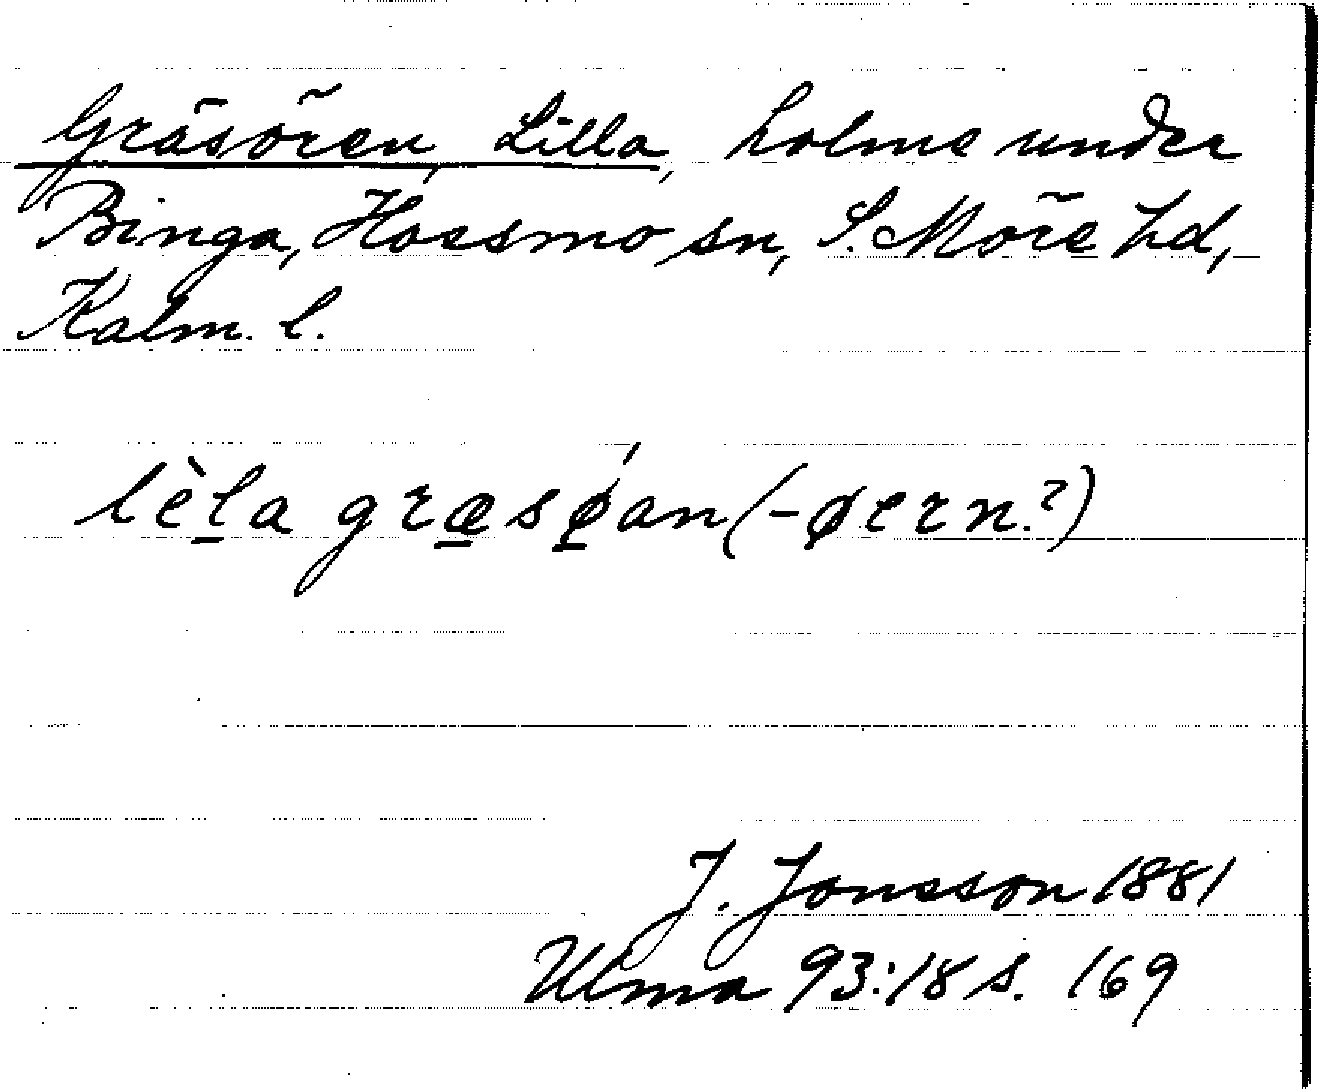 Gräsören, Lilla, holme under
Binga, Hossmo sn, S. Möre hd,
Kalm. l.
lèla græsǿan (-øern.?)
J. Jonsson 1881
Ulma 93:18 s. 169